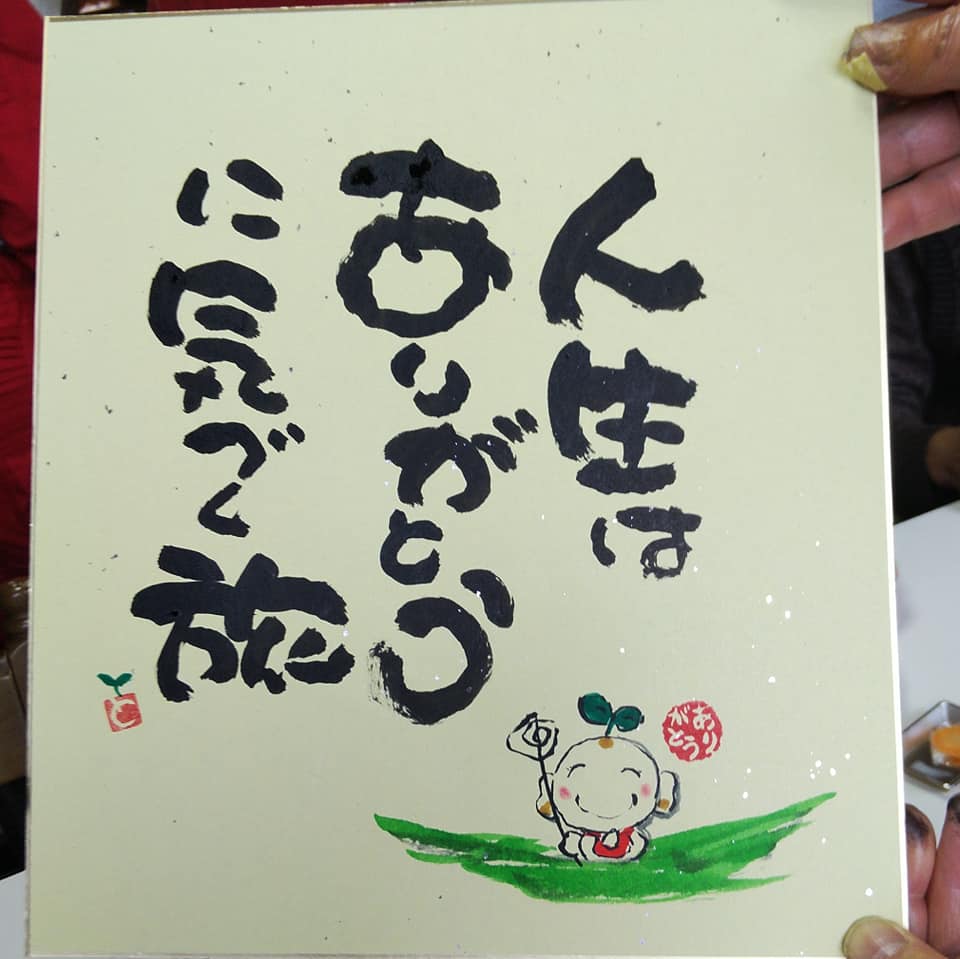 人生は
ありがとう
に気づく旅
あり
がとう
と